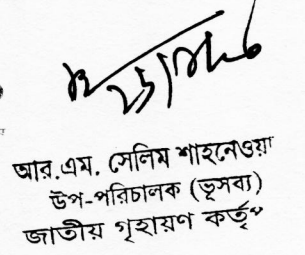 আর.এম. সেলিম শাহনেওয়া
উপ-পরিচালক (ভূসব্য)
জাতীয় গৃহায়ণ কর্তৃ